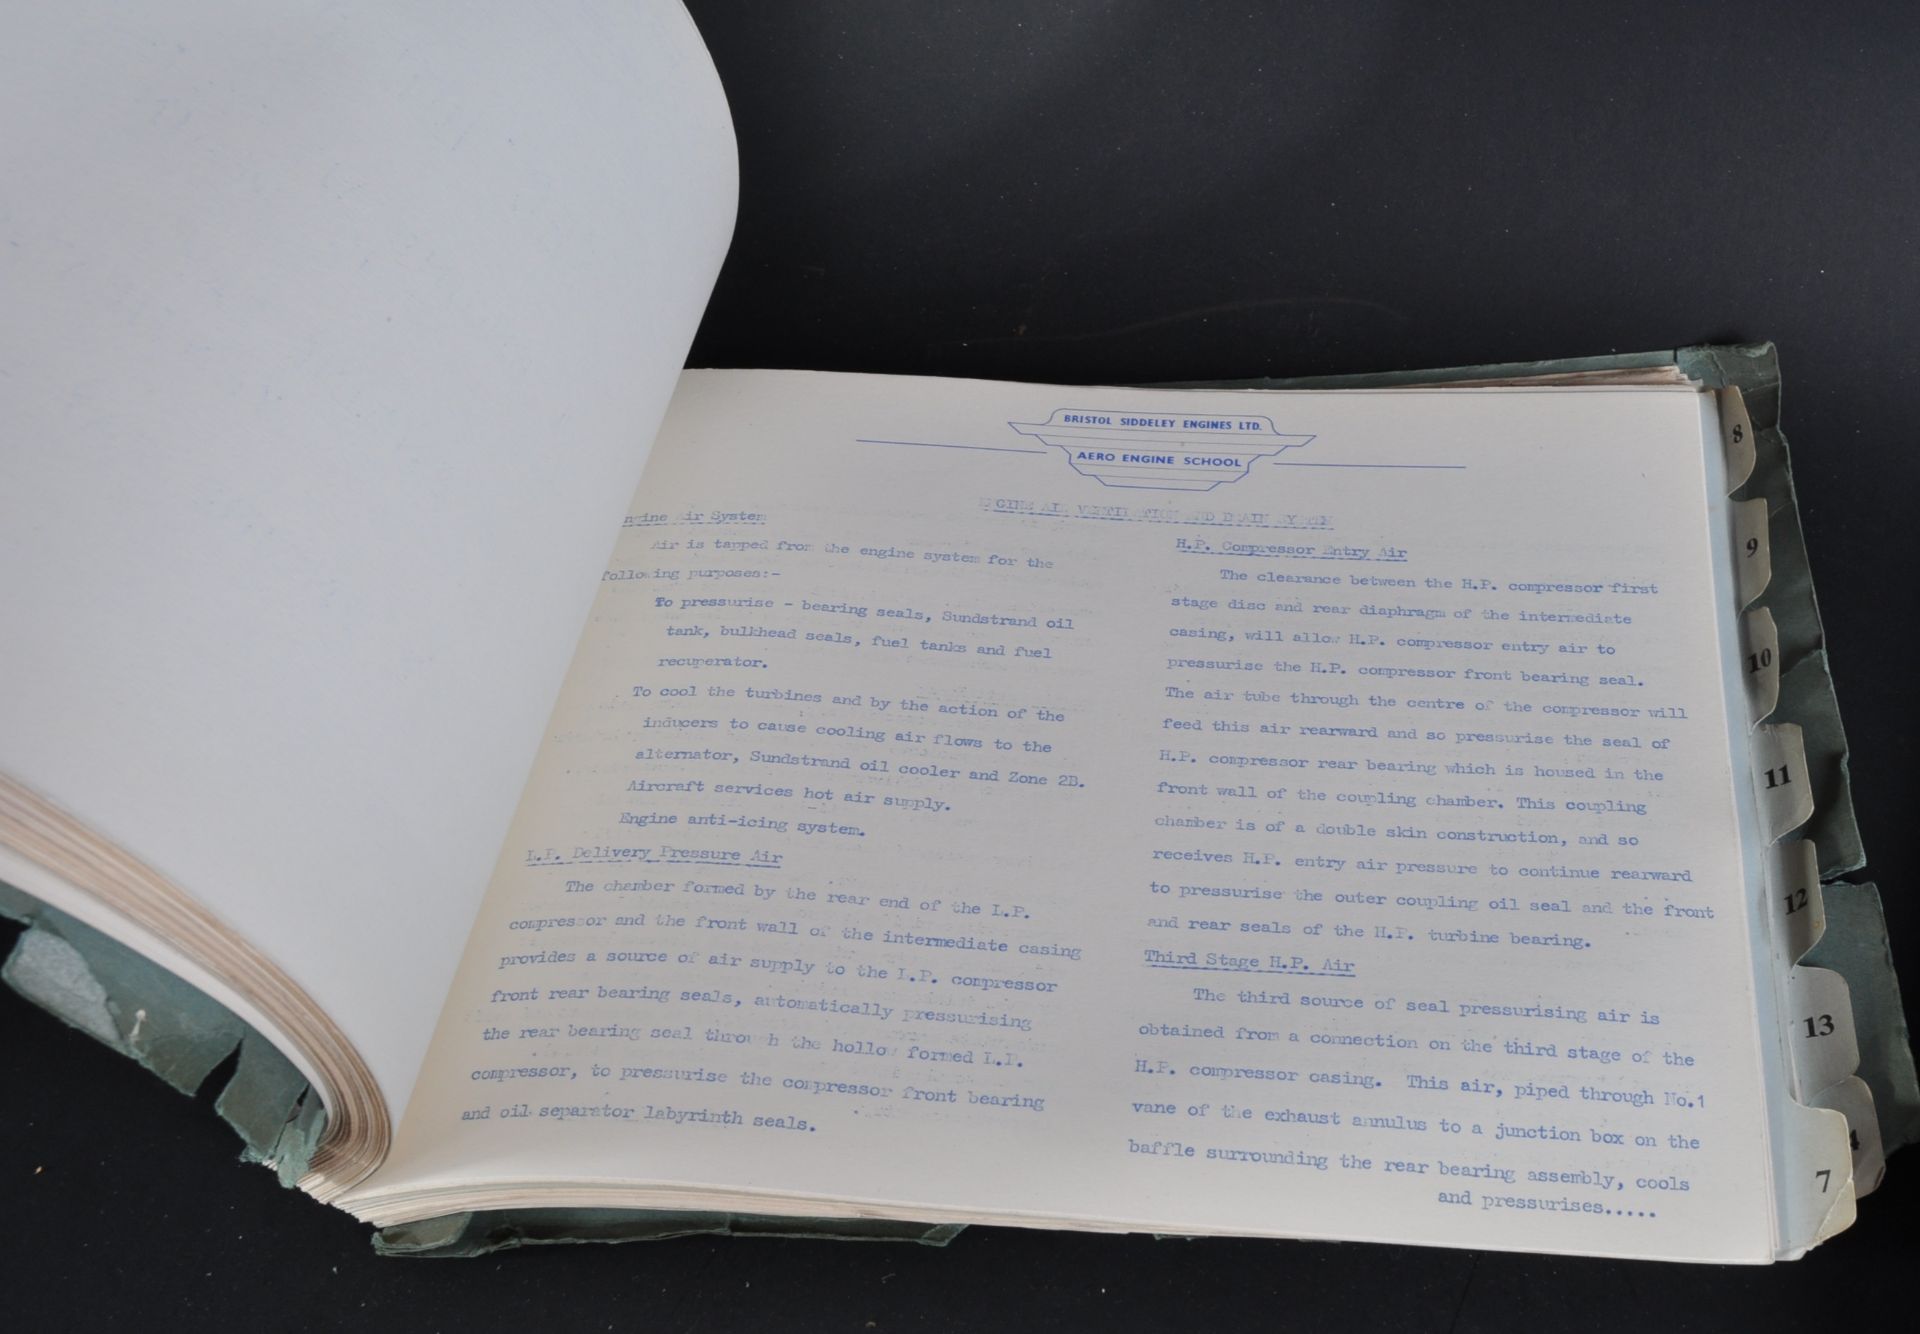 BRISTOL SIDDELEY ENGINES LTD.
AERO ENGINE SCHOOL
ENGINE AIR VENTILATION AND DRAIN SYSTEM
Engine Air System
Air is tapped from the engine system for the
following purposes:-
To pressurise - bearing seals, Sundstrand oil
tank, bulkhead seals, fuel tanks and fuel
recuperator.
To cool the turbines and by the action of the
inducers to cause cooling air flows to the
alternator, Sundstrand oil cooler and Zone 2B.
Aircraft services hot air supply.
Engine anti-icing system.
L.P. Delivery Pressure Air
The chamber formed by the rear end of the L.P.
compressor and the front wall of the intermediate casing
provides a source of air supply to the L.P. compressor
front rear bearing seals, automatically pressurising
the rear bearing seal through the hollow formed L.P.
compressor, to pressurise the compressor front bearing
and oil separator labyrinth seals.
H.P. Compressor Entry Air
The clearance between the H.P. compressor first
stage disc and rear diaphragm of the intermediate
casing, will allow H.P. compressor entry air to
pressurise the H.P. compressor front bearing seal.
The air tube through the centre of the compressor will
feed this air rearward and so pressurise the seal of
H.P. compressor rear bearing which is housed in the
front wall of the coupling chamber. This coupling
chamber is of a double skin construction, and so
receives H.P. entry air pressure to continue rearward
to pressurise the outer coupling oil seal and the front
and rear seals of the H.P. turbine bearing.
Third Stage H.P. Air
The third source of seal pressurising air is
obtained from a connection on the third stage of the
H.P. compressor casing. This air, piped through No.1
vane of the exhaust annulus to a junction box on the
baffle surrounding the rear bearing assembly, cools
and pressurises.....
8
9
10
11
12
13
4
7